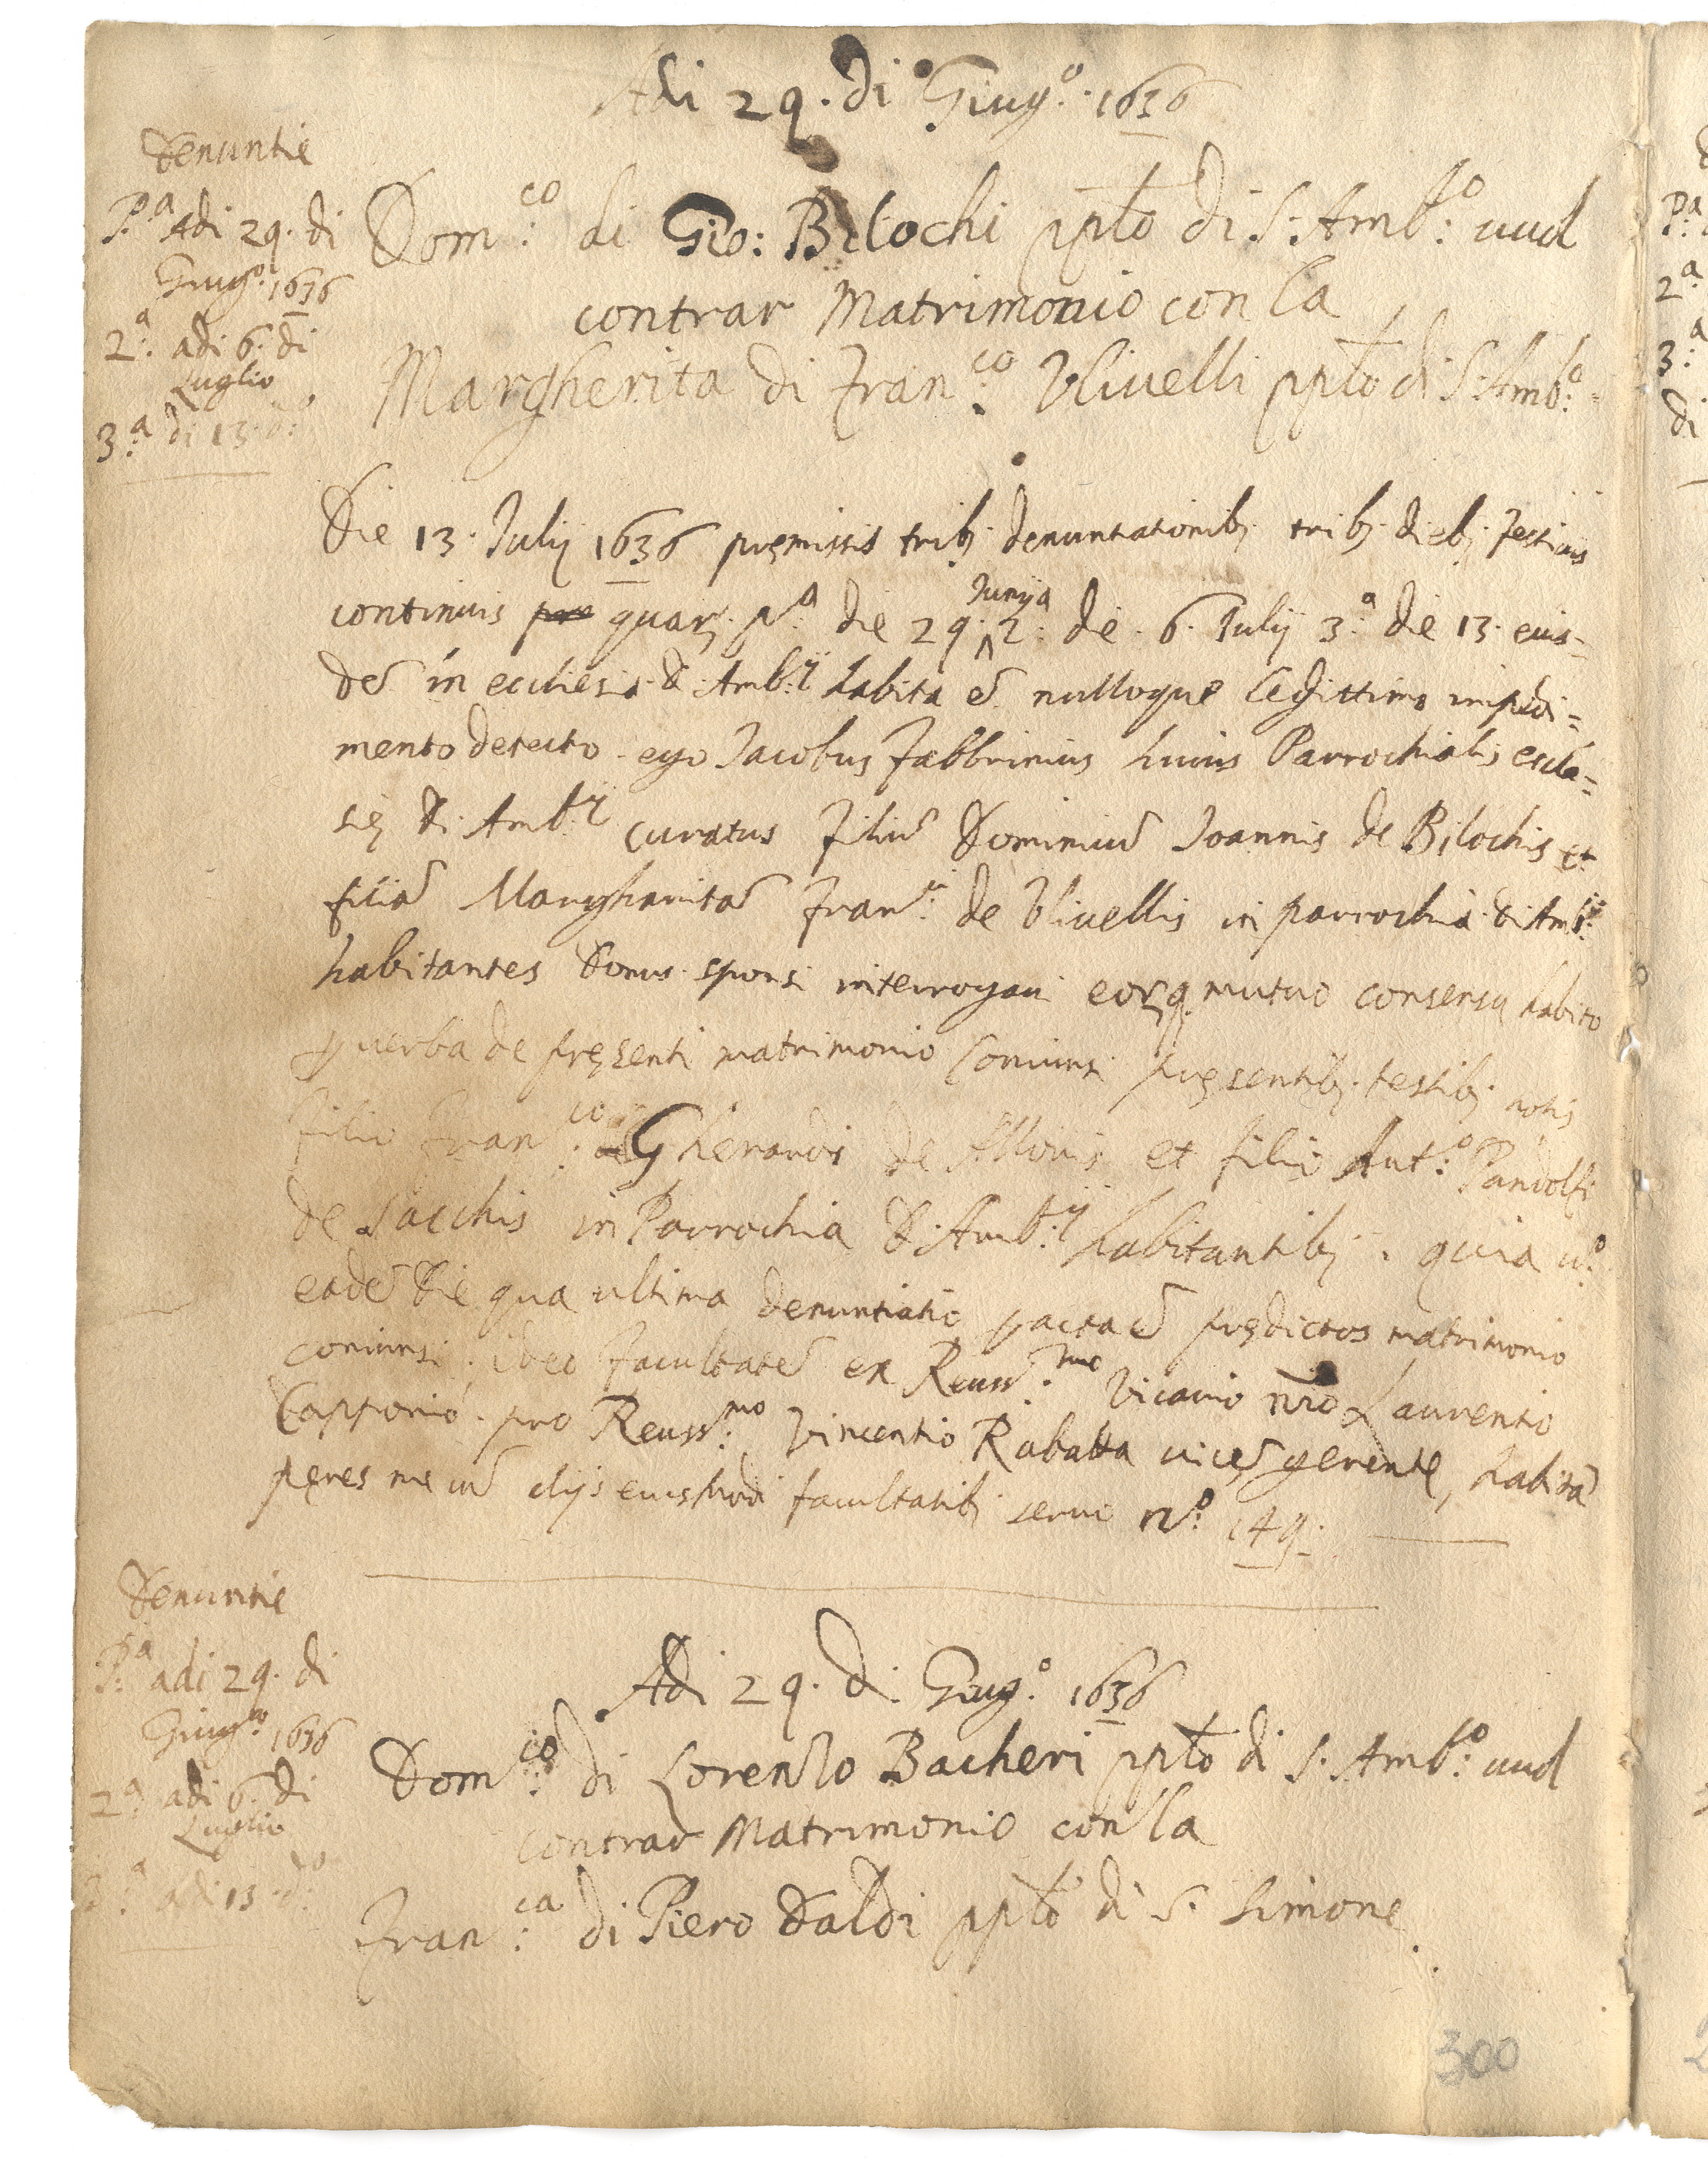 Adi 29. di Giug.º 1636
Denuntie
P.ª Adi 29. di
Giugº. 1636
2.ª adi 6. di
Luglio
3.ª di 13. dº
Dom.co di Gio: Bilochi pplo di S. Amb.º uuol
contrar Matrimonio con la
Margherita di Fran.co Vliuelli pplo di S. Amb.º
Die 13. Julij 1636 pręmissis trib9 denuntiationib9 trib9 dieb9 festiuis
continuis quarũ pª. die 29. Junij 2.ª die. 6. Julij 3.ª die 13. eius=
dẽ in ecclesia Amb.ij habita ẽ nulloque legittimo impedi=
mento detecto. ego Jacobus Fabbrinius huius Parrochialis eccle=
się Amb.ij curatus filiũ Dominicũ Joannis de Bilochis et
filiã Margharitã Fran.ci de Vliuellis in parrochia Amb.ij
habitantes Domi sponsi interrogaui eorq. mutuo consensu habito
p uerba de pręsenti matrimonio coniunxi pręsentib9. testib9. notis
filio Fran.co Gherardi de Alloris et filio Ant.º Pandolfi
de Sacchis in Parrochia Amb.ij habitantib9. quia u.º
eadẽ die qua ultima denuntiatio pacta ẽ prędictos matrimonio
coniunxi. ideo facultatẽ ex Reuss.mo Vicario nr̃o Laurentio
Capponio. pro Reuss.mo Vincentio Rabatta uicẽ gerente, habitã
pęres me cũ alijs eiusmodi facultatib9 seruo nº. 149.
Denuntie
P.ª adi 29. di
Giugº. 1636
2.ª adi 6. di
Luglio
3.ª adi 13. dº
Adi 29. di Giug.º 1636
Dom.co di Lorenzo Bacheri pplo di S. Amb.º uuol
contrar Matrimonio con la
Fran.ca di Piero Daldi pplo di S. Simone.
300